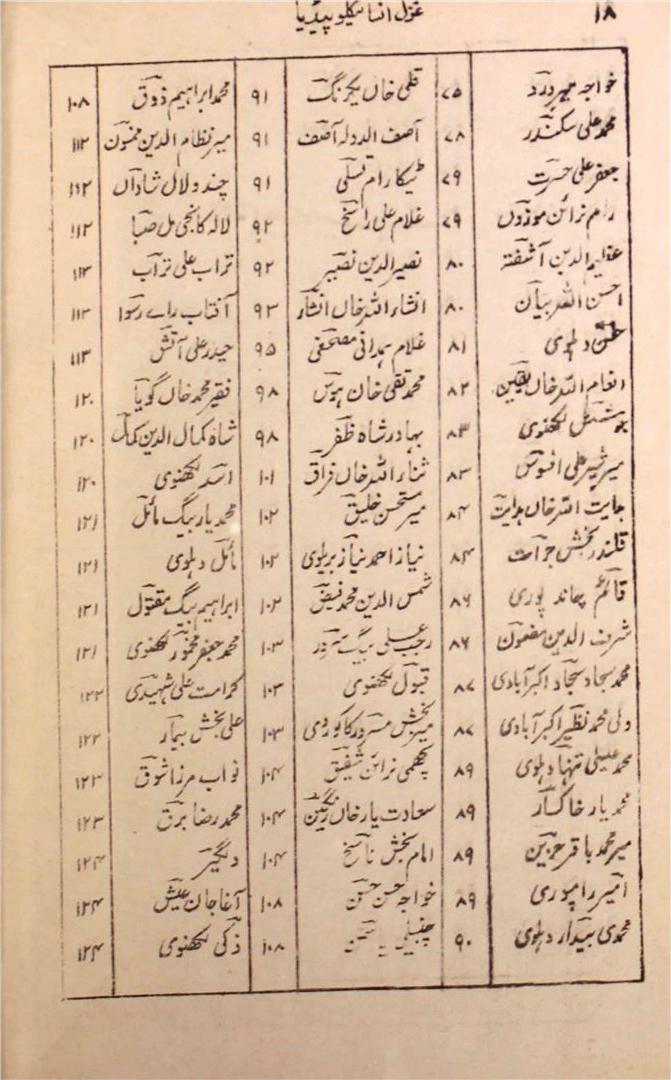 ۱۸ غزل انسائیکلوپیڈیا
خواجہ میر درد ۷۵ قلی خاں یکرنگ ۹۱ محمد ابراہیم ذوق ۱۰۸
محمد علی سکندر ۷۸ آصف الدولہ آصف ۹۱ میر نظام الدین ممنون ۱۱۲
جعفر علی حسرت ۷۹ ٹیکا رام تسلی ۹۱ چندو لال شاداں ۱۱۲
رام نرائن موزوں ۷۹ غلام علی راسخ ۹۲ لالہ کانجی مل صبا ۱۱۲
عظیم الدین آشفتہ ۸۰ نصیر الدین نصیر ۹۲ تراب علی تراب ۱۱۳
احسن اللہ بیان ۸۰ انشاء اللہ خاں انشاء ۹۳ آفتاب رائے رسوا ۱۱۳
حسن دہلوی ۸۱ غلام ہمدانی مصحفی ۹۵ حیدر علی آتش ۱۱۳
انعام اللہ خاں یقین ۸۲ محمد تقی خان ہوس ۹۸ فقیر محمد خاں گویا ۱۲۰
لکھنوی ۸۳ بہادر شاہ ظفر ۹۸ شاہ کمال الدین کمال ۱۲۰
میر شیر علی افسوس ۸۳ ثناء اللہ خاں فراق ۱۰۱ اسد لکھنوی ۱۲۰
ہدایت اللہ خاں ہدایت ۸۴ میر مستحسن خلیق ۱۰۲ محمد یار بیگ مائل ۱۲۱
قلندر بخش جرأت ۸۴ نیاز احمد نیاز بریلوی ۱۰۲ مائل دہلوی ۱۲۱
قائم چاند پوری ۸۶ شمس الدین محمد فیض ۱۰۲ ابراہیم بیگ مقتول ۱۲۱
شرف الدین مضمون ۸۶ رجب علی بیگ سرور ۱۰۳ محمد جعفر مخمور لکھنوی ۱۲۱
محمد سجاد سجاد اکبر آبادی ۸۷ قبول لکھنوی ۱۰۳ کرامت علی شہیدی ۱۲۲
ولی محمد نظیر اکبر آبادی ۸۷ میر بخش مسرور کاکوروی ۱۰۳ علی بخش بیمار ۱۲۲
محمد عیسیٰ تنہا دہلوی ۸۹ لچھمی نرائن شفیق ۱۰۴ نواب مرزا شوق ۱۲۳
محمد یار خاکسار ۸۹ سعادت یار خاں رنگین ۱۰۴ محمد رضا برق ۱۲۳
میر محمد باقر حزین ۸۹ امام بخش ناسخ ۱۰۴ دلگیر ۱۲۴
امیر رامپوری ۸۹ خواجہ حسن حسن ۱۰۸ آغا جان عیش ۱۲۴
محمدی بیدار دہلوی ۹۰ ۱۰۸ ذکی لکھنوی ۱۲۴